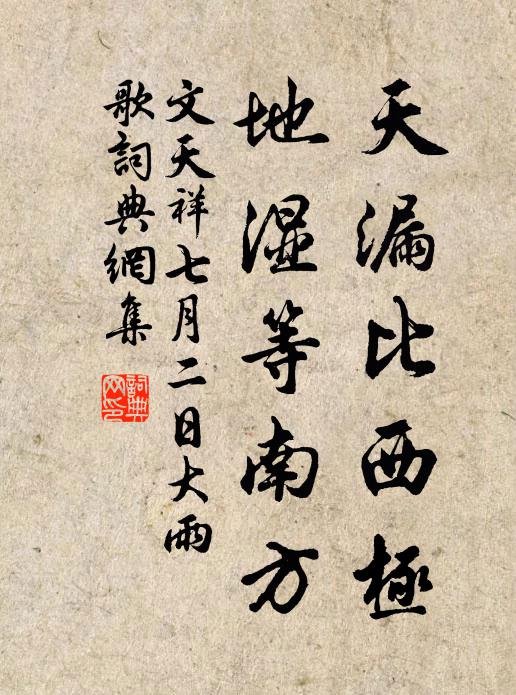 天漏比西極
地湿等南方
文天祥七月二日大雨
歌詞典網集
詞典网印